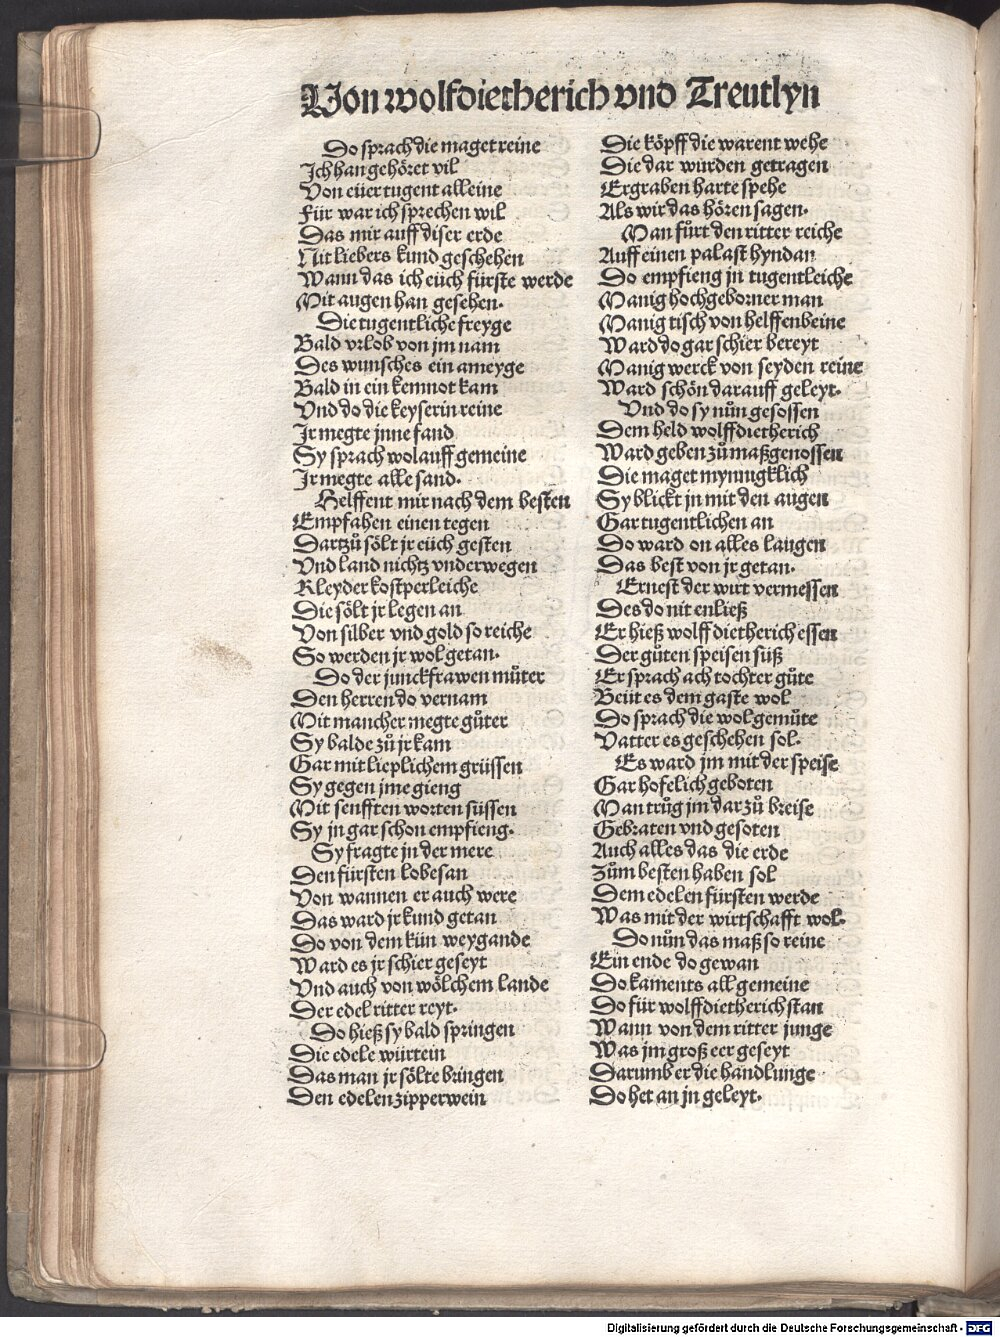 Von wolfdietherich vnd Treutlyn
Do sprach die maget reine
Ich han gehöret vil
Von eüer tugent alleine
Für war ich sprechen wil
Das mir auff diser erde
Nit liebers kund geschehen
Wann das ich eüch fürste werde
Mit augen han gesehen.
Die tugentliche freyge
Bald vrlob von jm nam
Des wunsches ein ameyge
Bald in ein kemnot kam
Vnd do die keyserin reine
Jr megte jnne fand
Sy sprach wolauff gemeine
Jr megte alle sand.
Helffent mir nach dem besten
Empfahen einen tegen
Dartzuͦ sölt jr eüch gesten
Vnd land nichtz vnderwegen
Kleyder kostperleiche
Die sölt jr legen an
Von silber vnd gold so reiche
So werden jr wol getan.
Do der junckfrawen muͦter
Den herren do vernam
Mit mancher megte guͦter
Sy balde zuͦ jr kam
Gar mit lieplichem grüssen
Sy gegen jme gieng
Mit senfften worten süssen
Sy jn gar schon empfieng.
Sy fragte jn der mere
Den fürsten lobesan
Von wannen er auch were
Das ward jr kund getan
Do von dem kün weygande
Ward es jr schier geseyt
Vnd auch von wölchem lande
Der edel ritter reyt.
Do hieß sy bald springen
Die edele würtein
Das man jr sölte bringen
Den edelen zipperwein
Die köpff die warent wehe
Die dar wurden getragen
Ergraben harte spehe
Als wir das hören sagen.
Man fuͦrt den ritter reiche
Auff einen palast hyndan
Do empfieng jn tugentleiche
Manig hochgeborner man
Manig tisch von helffenbeine
Ward do gar schier bereyt
Manig werck von seyden reine
Ward schön darauff geleyt.
Vnd do sy nuͦn gesossen
Dem held wolffdietherich
Ward geben zuͦ maßgenossen
Die maget mynnigklich
Sy blickt jn mit den augen
Gar tugentlichen an
Do ward on alles laugen
Das best von jr getan.
Ernest der wirt vermessen
Des do nit enließ
Er hieß wolffdietherich essen
Der guͦten speisen süß
Er sprach ach tochter guͦte
Beüt es dem gaste wol
Do sprach die wolgemuͦte
Vatter es geschehen sol.
Es ward jm mit der speise
Gar hofelich geboten
Man truͦg jm dar zuͦ breise
Gebraten vnd gesoten
Auch alles das die erde
Zuͦm besten haben sol
Dem edelen fürsten werde
Was mit der wirtschafft wol.
Do nuͦn das maß so reine
Ein ende do gewan
Do kaments all gemeine
Do für wolffdietherich stan
Wann von dem ritter junge
Was jm groß eer geseyt
Darumb er die handlunge
Do het an jn geleyt.
Digitalisierung gefördert durch die Deutsche Forschungsgemeinschaft - DFG